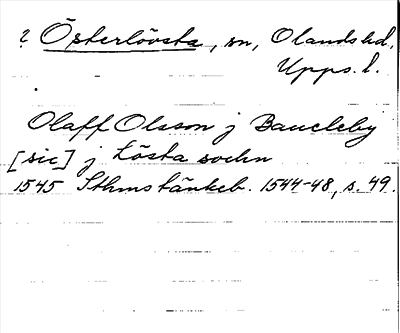 ? Österlövsta, sn, Olands hd,
Upps. l.
Olaff Olsson j Baucleby
[sic] j Lösta sochn
1545 Sthms tänkeb. 1544-48, s. 49.